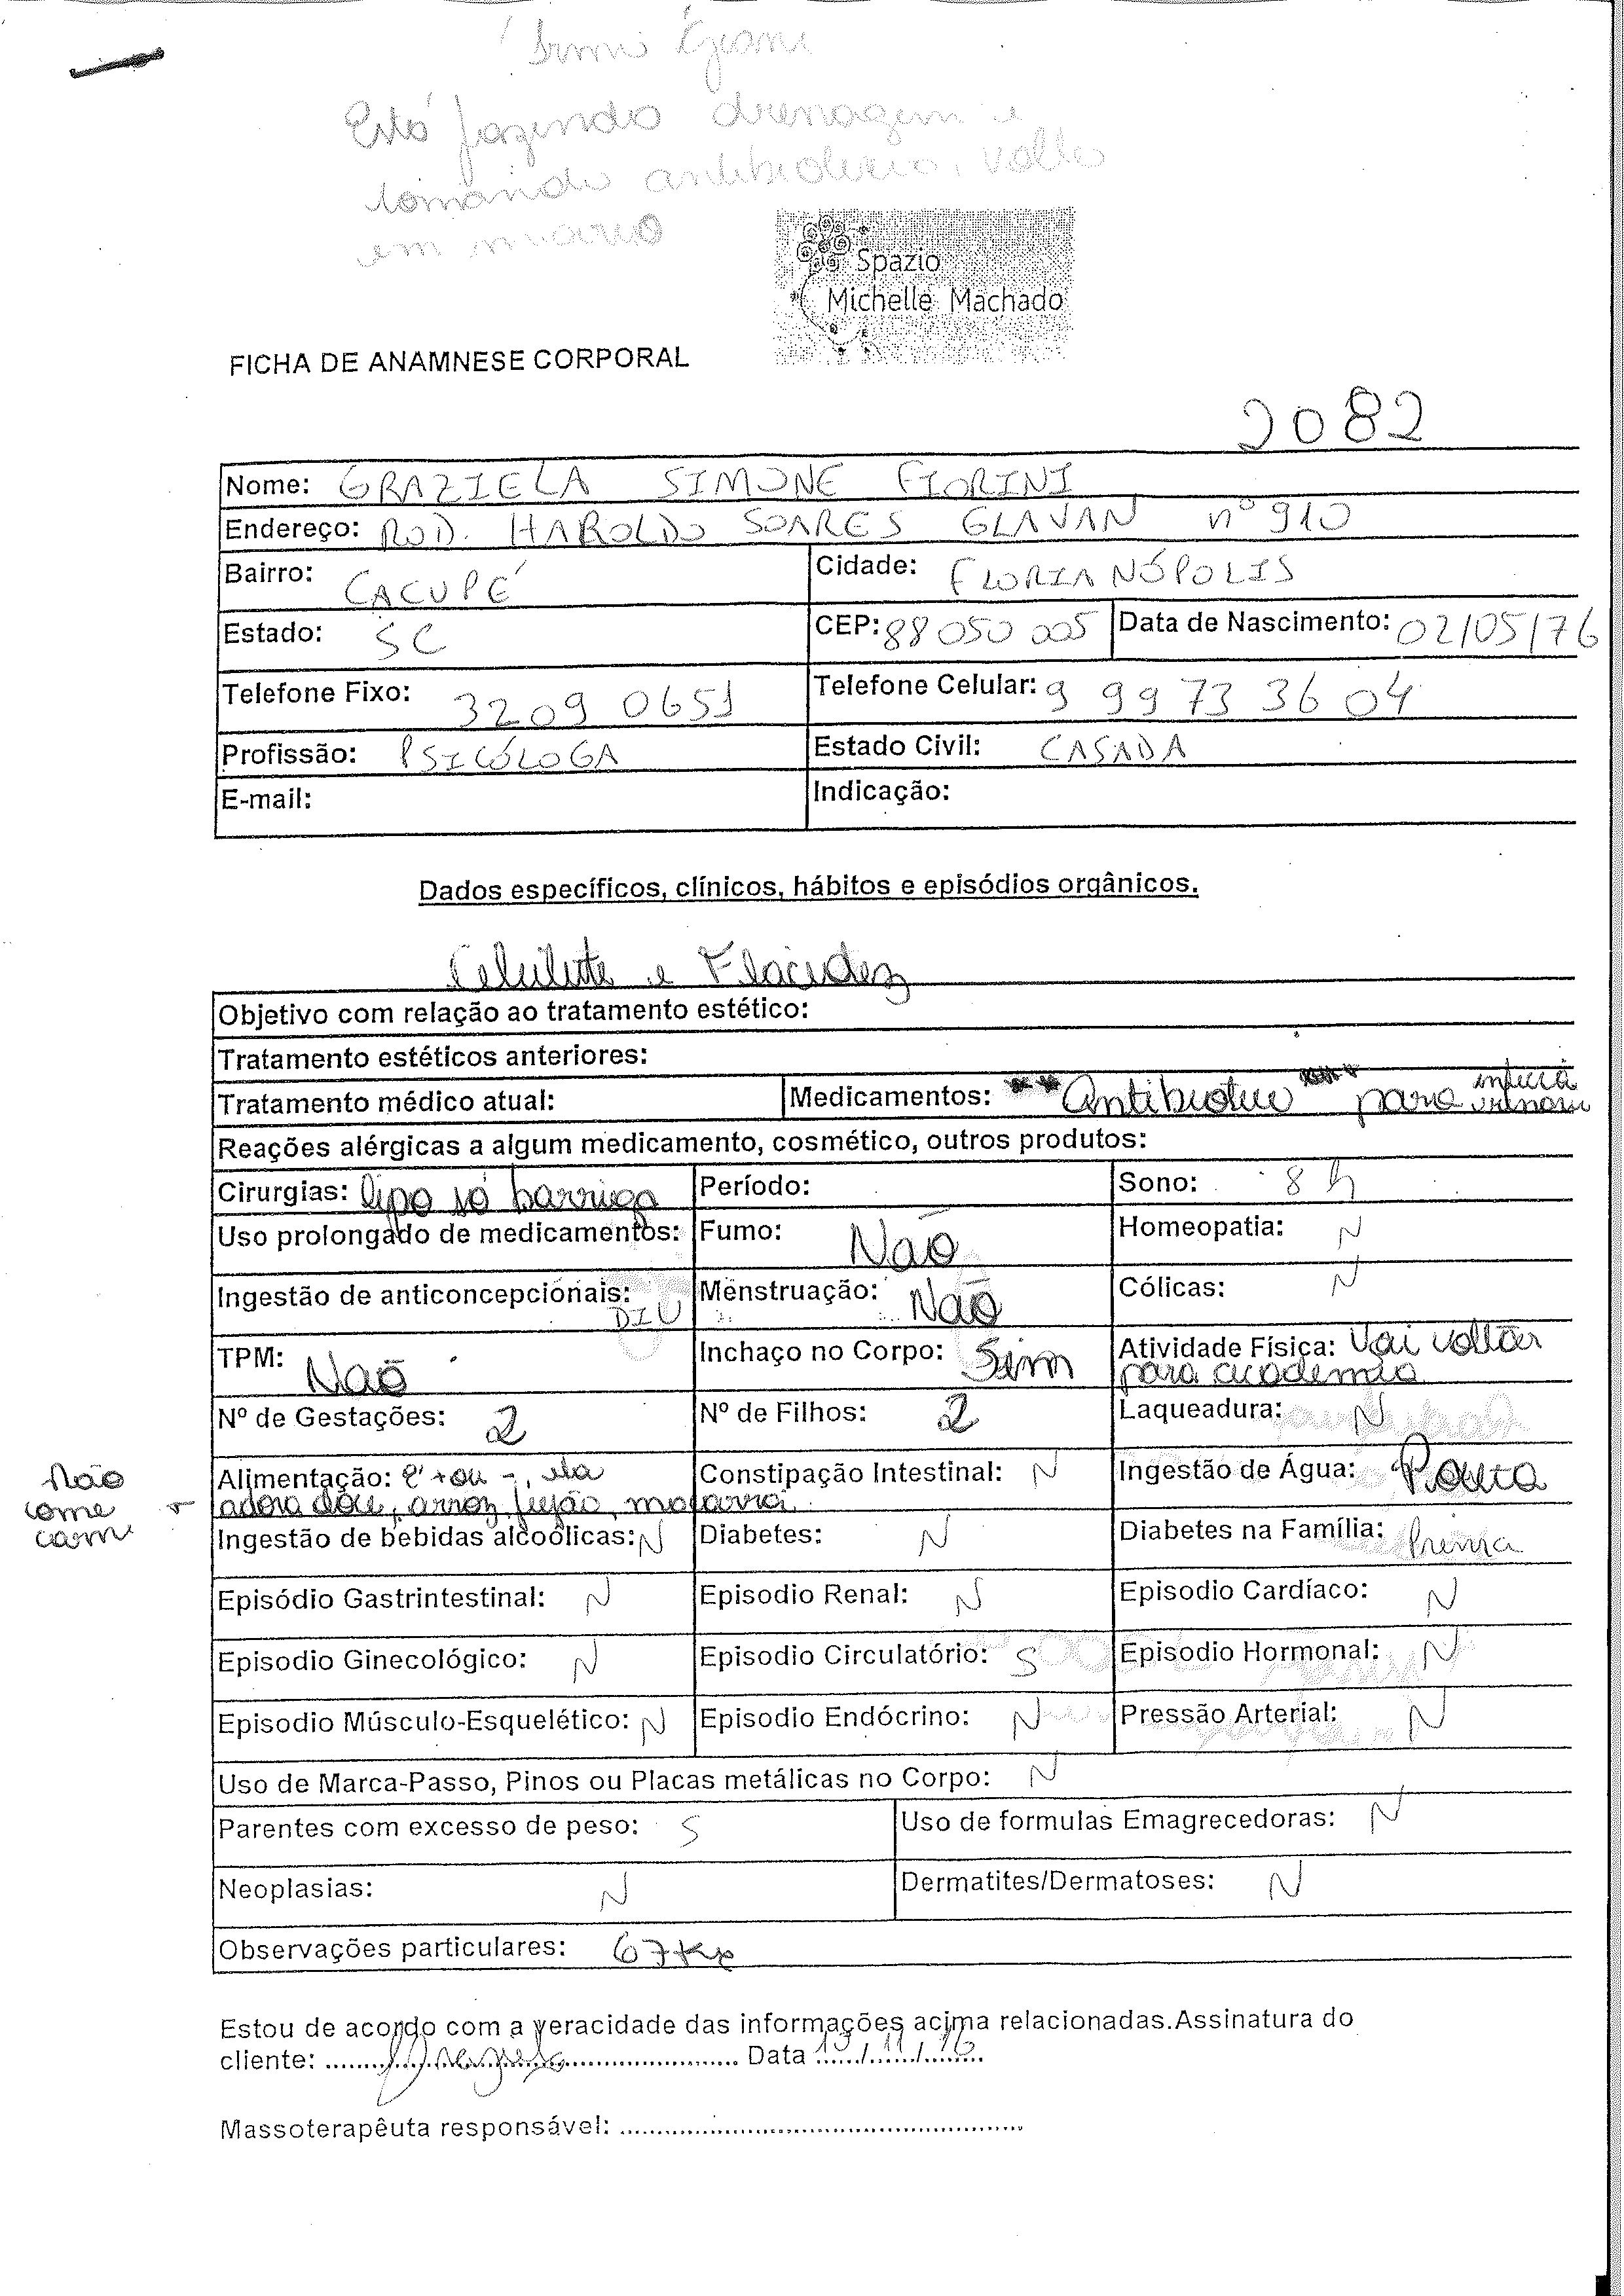 Está fazendo drenagem e
tomando antibiotico, volto
em março
Spazio
Michelle Machado
FICHA DE ANAMNESE CORPORAL
2082
Nome: GRAZIELA SIMONE FIORINI
Endereço: ROD. HAROLDO SOARES GLAVAN nº 910
Bairro: CACUPÉ Cidade: FLORIANÓPOLIS
Estado: SC CEP: 88 050 005 Data de Nascimento: 02/05/76
Telefone Fixo: 3209 0651 Telefone Celular: 9 9973 3604
Profissão: PSICÓLOGA Estado Civil: CASADA
E-mail: Indicação:
Dados específicos, clínicos, hábitos e episódios orgânicos.
Celulite e Flacidez
Objetivo com relação ao tratamento estético:
Tratamento estéticos anteriores:
Tratamento médico atual: Medicamentos: ** Antibiotico para urinaria
Reações alérgicas a algum medicamento, cosmético, outros produtos:
Cirurgias: lipo só barriga Período: Sono: 8 h
Uso prolongado de medicamentos: Fumo: Não Homeopatia: N
Ingestão de anticoncepcionais: DIU Menstruação: Não Cólicas: N
TPM: Não Inchaço no Corpo: Sim Atividade Física: Vai voltar
para academia
Nº de Gestações: 2 Nº de Filhos: 2 Laqueadura: N
Não
come
carne
Alimentação: é + ou -, ela Constipação Intestinal: N Ingestão de Água: Pouca
adora doce, arroz, feijão, macarrão
Ingestão de bebidas alcoólicas: N Diabetes: N Diabetes na Família: Prima
Episódio Gastrintestinal: N Episodio Renal: N Episodio Cardíaco: N
Episodio Ginecológico: N Episodio Circulatório: S Episodio Hormonal: N
Episodio Músculo-Esquelético: N Episodio Endócrino: N Pressão Arterial: N
Uso de Marca-Passo, Pinos ou Placas metálicas no Corpo: N
Parentes com excesso de peso: S Uso de formulas Emagrecedoras: N
Neoplasias: N Dermatites/Dermatoses: N
Observações particulares: 67 Kg
Estou de acordo com a veracidade das informações acima relacionadas.Assinatura do
cliente: Graziela Data 19/11/16
Massoterapêuta responsável: